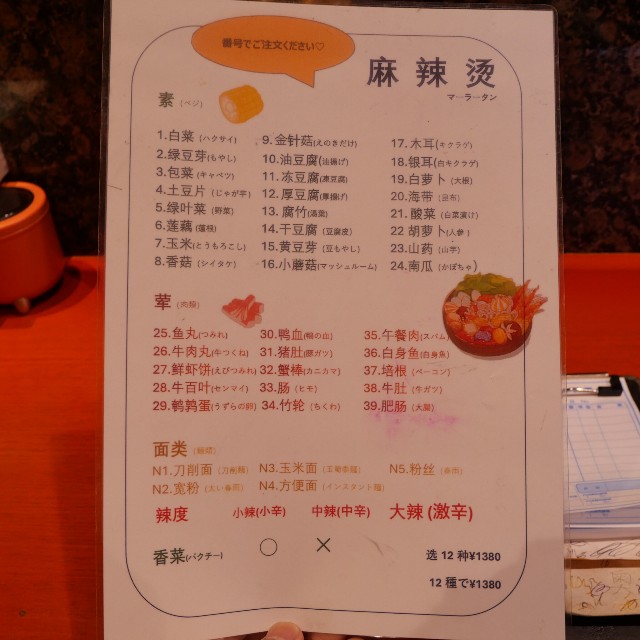 番号でご注文ください♡
麻辣烫
マーラータン
素 (ベジ)
1.白菜 (ハクサイ)
2.绿豆芽(もやし)
3.包菜 (キャベツ)
4.土豆片 (じゃが芋)
5.绿叶菜 (野菜)
6.莲藕 (蓮根)
7.玉米(とうもろこし)
8.香菇 (シイタケ)
9.金针菇(えのきだけ)
10.油豆腐(油揚げ)
11.冻豆腐(凍豆腐)
12.厚豆腐(厚揚げ)
13.腐竹(湯葉)
14.干豆腐 (豆腐皮)
15.黄豆芽 (豆もやし)
16.小蘑菇(マッシュルーム)
17.木耳(キクラゲ)
18.银耳(白キクラゲ)
19.白萝卜 (大根)
20.海带 (昆布)
21.酸菜 (白菜漬け)
22 胡萝卜(人参)
23.山药 (山芋)
24.南瓜 (かぼちゃ)
荤 (肉類)
25.鱼丸(つみれ)
26.牛肉丸(牛つくね)
27.鲜虾饼(えびつみれ)
28.牛百叶(センマイ)
29.鹌鹑蛋(うずらの卵)
30.鸭血(鴨の血)
31.猪肚(豚ガツ)
32.蟹棒(カニカマ)
33.肠 (ヒモ)
34.竹轮 (ちくわ)
35.午餐肉(スパム)
36.白身鱼(白身魚)
37.培根 (ベーコン)
38.牛肚 (牛ガツ)
39.肥肠 (大腸)
面类 (麺類)
N1.刀削面 (刀削麺)
N2.宽粉 (太い春雨)
N3.玉米面 (玉蜀黍麺)
N4.方便面 (インスタント麺)
N5.粉丝 (春雨)
辣度 小辣(小辛) 中辣(中辛) 大辣(激辛)
香菜(パクチー) ○ ×
选 12 种¥1380
12 種で¥1380